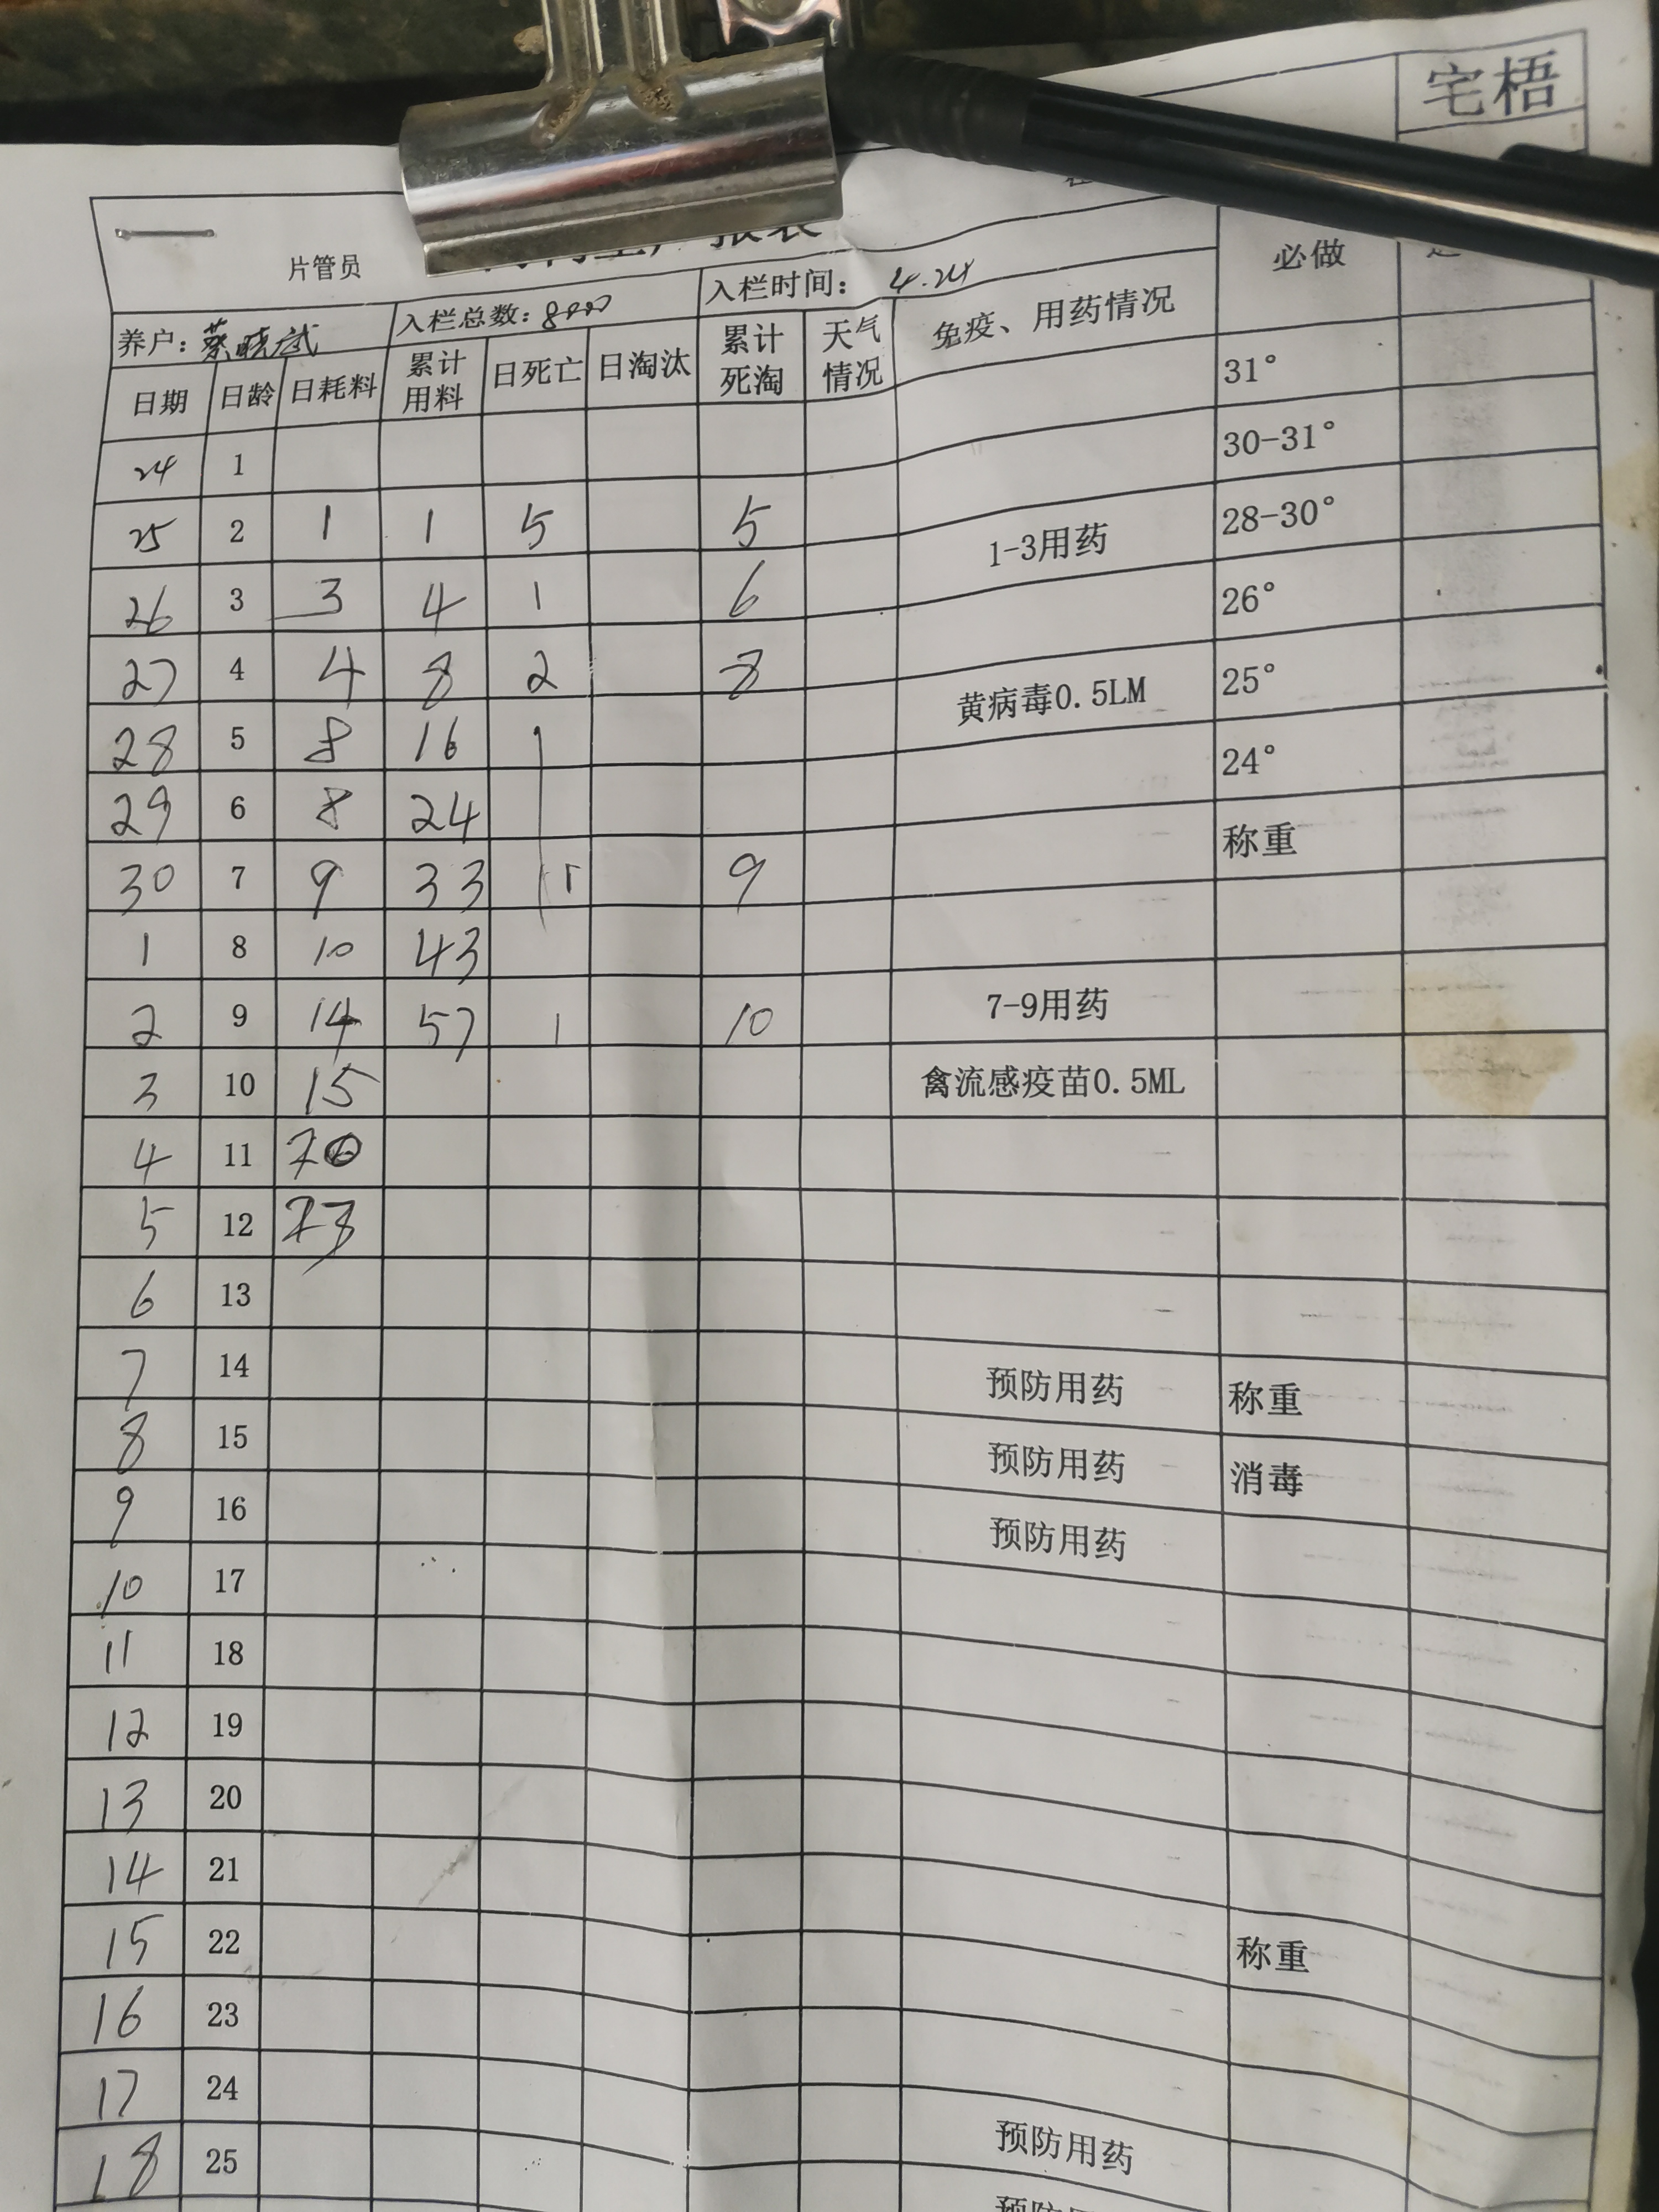 宅梧
片管员
必做
养户：蔡晓武 入栏总数：8000 入栏时间： 4.24
日期 日龄 日耗料 累计用料 日死亡 日淘汰 累计死淘 天气情况 免疫、用药情况
31°
24 1 30-31°
25 2 1 1 5 5 1-3用药 28-30°
26 3 3 4 1 6 26°
27 4 4 8 2 8 黄病毒0.5LM 25°
28 5 8 16 24°
29 6 8 24 称重
30 7 9 33 9
1 8 10 43
2 9 14 57 1 10 7-9用药
3 10 15 禽流感疫苗0.5ML
4 11 20
5 12 23
6 13
7 14 预防用药 称重
8 15 预防用药 消毒
9 16 预防用药
10 17
11 18
12 19
13 20
14 21
15 22 称重
16 23
17 24
18 25 预防用药